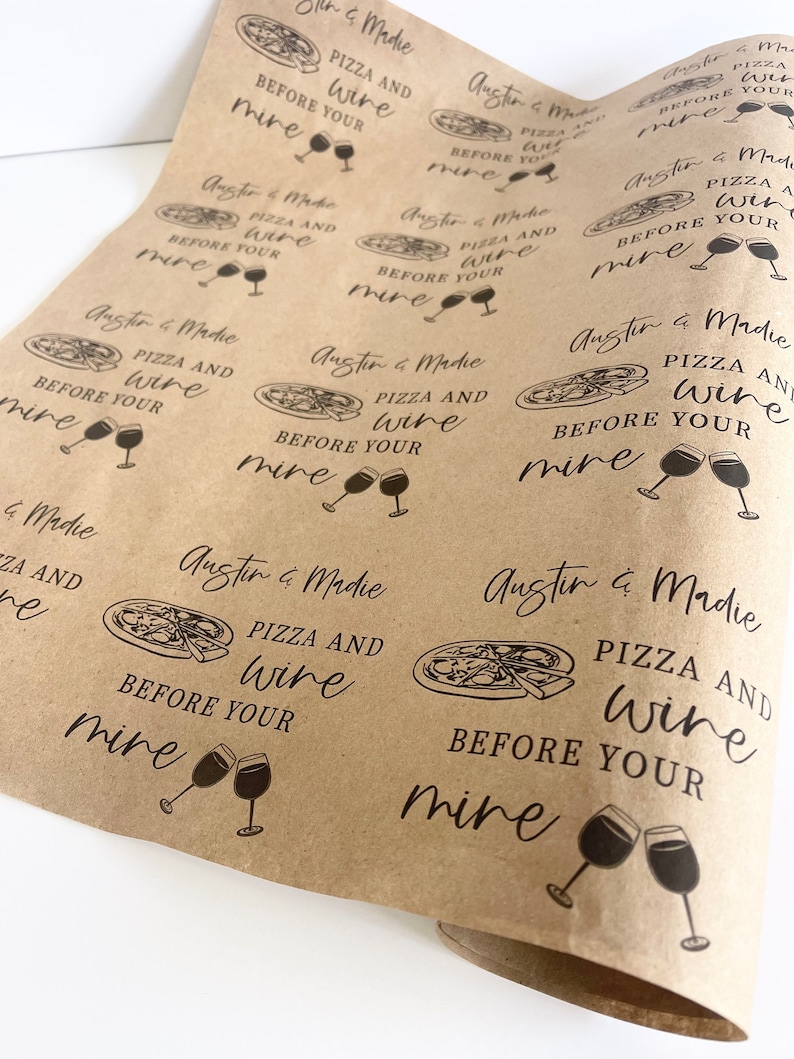 & Madie
PIZZA AND
wine
BEFORE YOUR
mine
Austin & Madie
PIZZA AND
wine
BEFORE YOUR
mine
Austin &
PIZZA
wine
BEFORE YOUR
mine
Austin & Madie
PIZZA AND
wine
BEFORE YOUR
mine
Austin & Madie
PIZZA AND
wine
BEFORE YOUR
mine
Austin & Madie
PIZZA
wine
BEFORE YOUR
mine
Austin & Madie
PIZZA AND
wine
BEFORE YOUR
mine
Austin & Madie
PIZZA AND
wine
BEFORE YOUR
mine
Austin & Madie
PIZZA AND
wine
BEFORE YOUR
mine
& Madie
AND
Austin & Madie
PIZZA AND
wine
BEFORE YOUR
mine
Austin & Madie
PIZZA AND
wine
BEFORE YOUR
mine